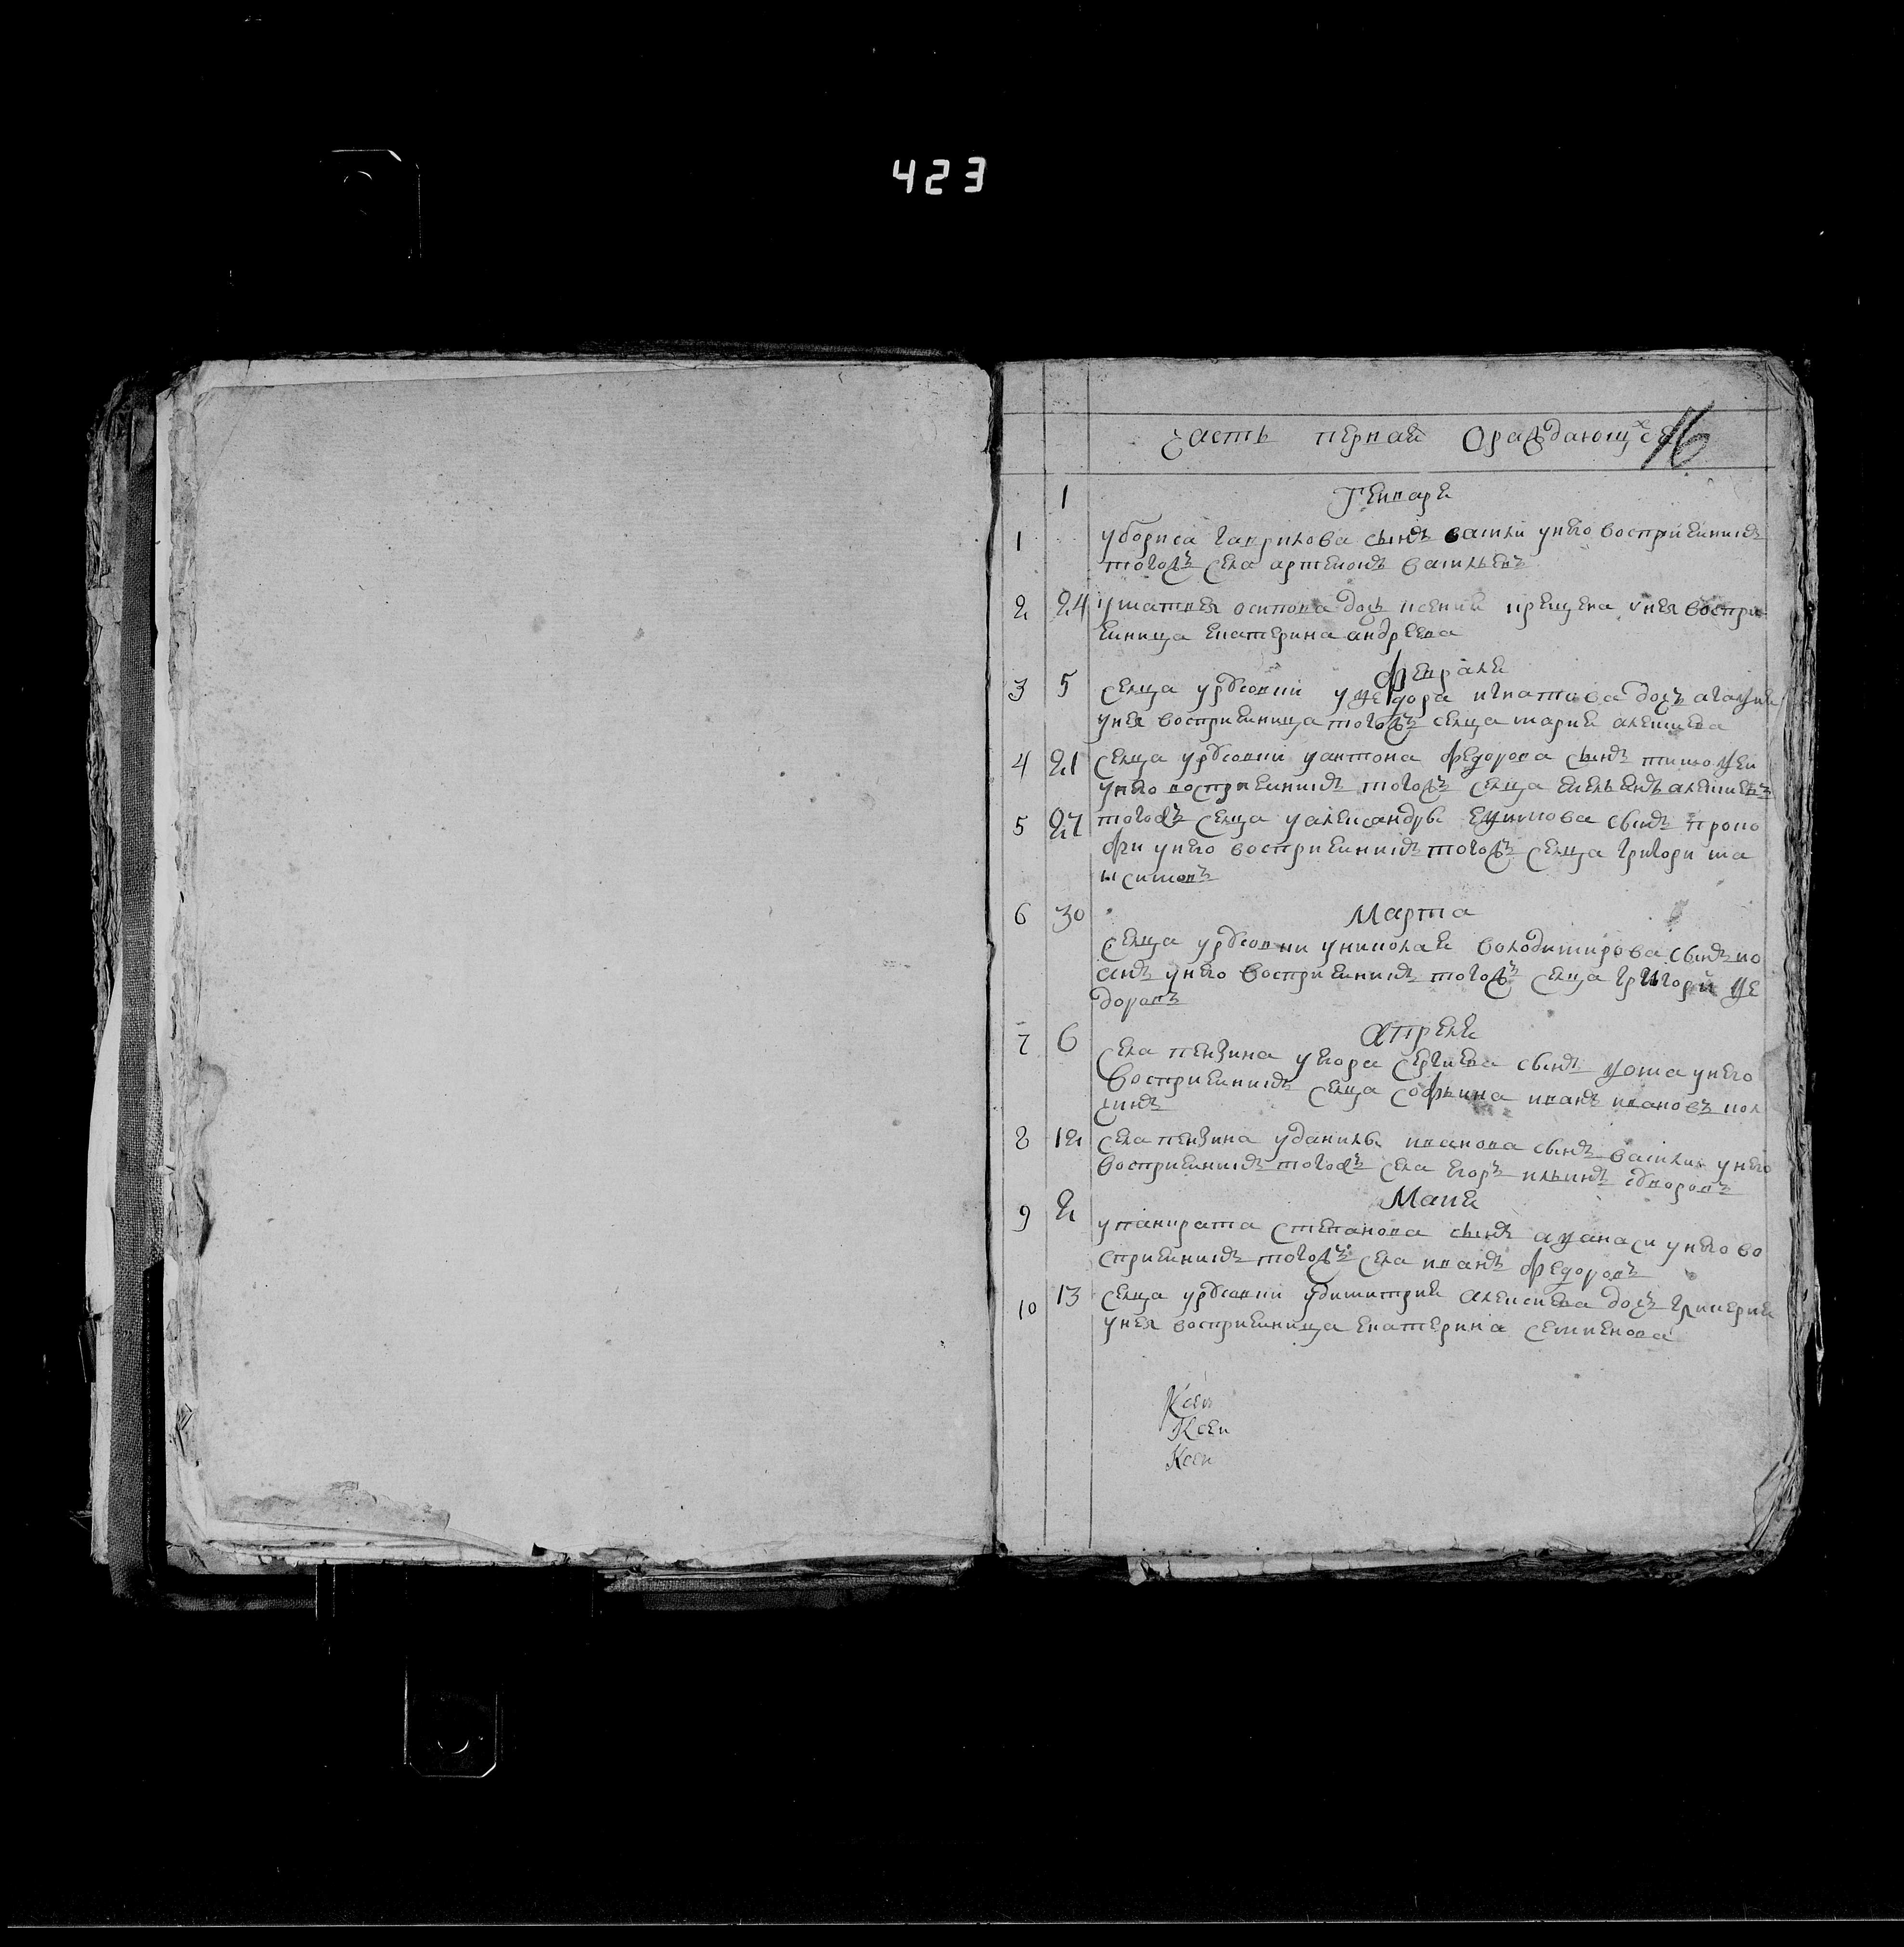 423
16
часть первая О раждающихся
1 Генваря
1 у бориса гаврилова сынъ васили у него восприемникъ
тогожъ села артемонъ васильевъ
2 24 у матвея осипова дочь ксения крещена у нея воспри
емница екатерина андреева
Февраля
3 5 селца урусовки у федора игнатова дочь агафия
у нея восприемница тогожъ селца мария алешиева
4 21 селца урусовки у антона федорова сынъ тимофеи
у него восприемникъ тогожъ селца емельянъ
5 27 тогожъ селца у александры ефимова сынъ проко
фи у него восприемникъ тогожъ селца григори ма
ксимовъ
Марта
6 30
селца урусовки у николая володимирова сынъ ио
анъ у него восприемникъ тогожъ селца григорий фе
доровъ
Апреля
7 6 села пензина у егора сергиева сынъ фома у него
восприемникъ селца софьина иванъ ивановъ
8 12 села пензина у данилы иванова сынъ васили у него
восприемникъ тогожъ села егоръ ильинъ
Маия
9 2 у панкрата степанова сынъ афанаси у него во
сприемникъ тогожъ села иванъ федоровъ
10 13 селца урусовки у димитрия алексиева дочь гликерия
у нея восприемница екатерина семионова
Ксен
Ксен
Ксен